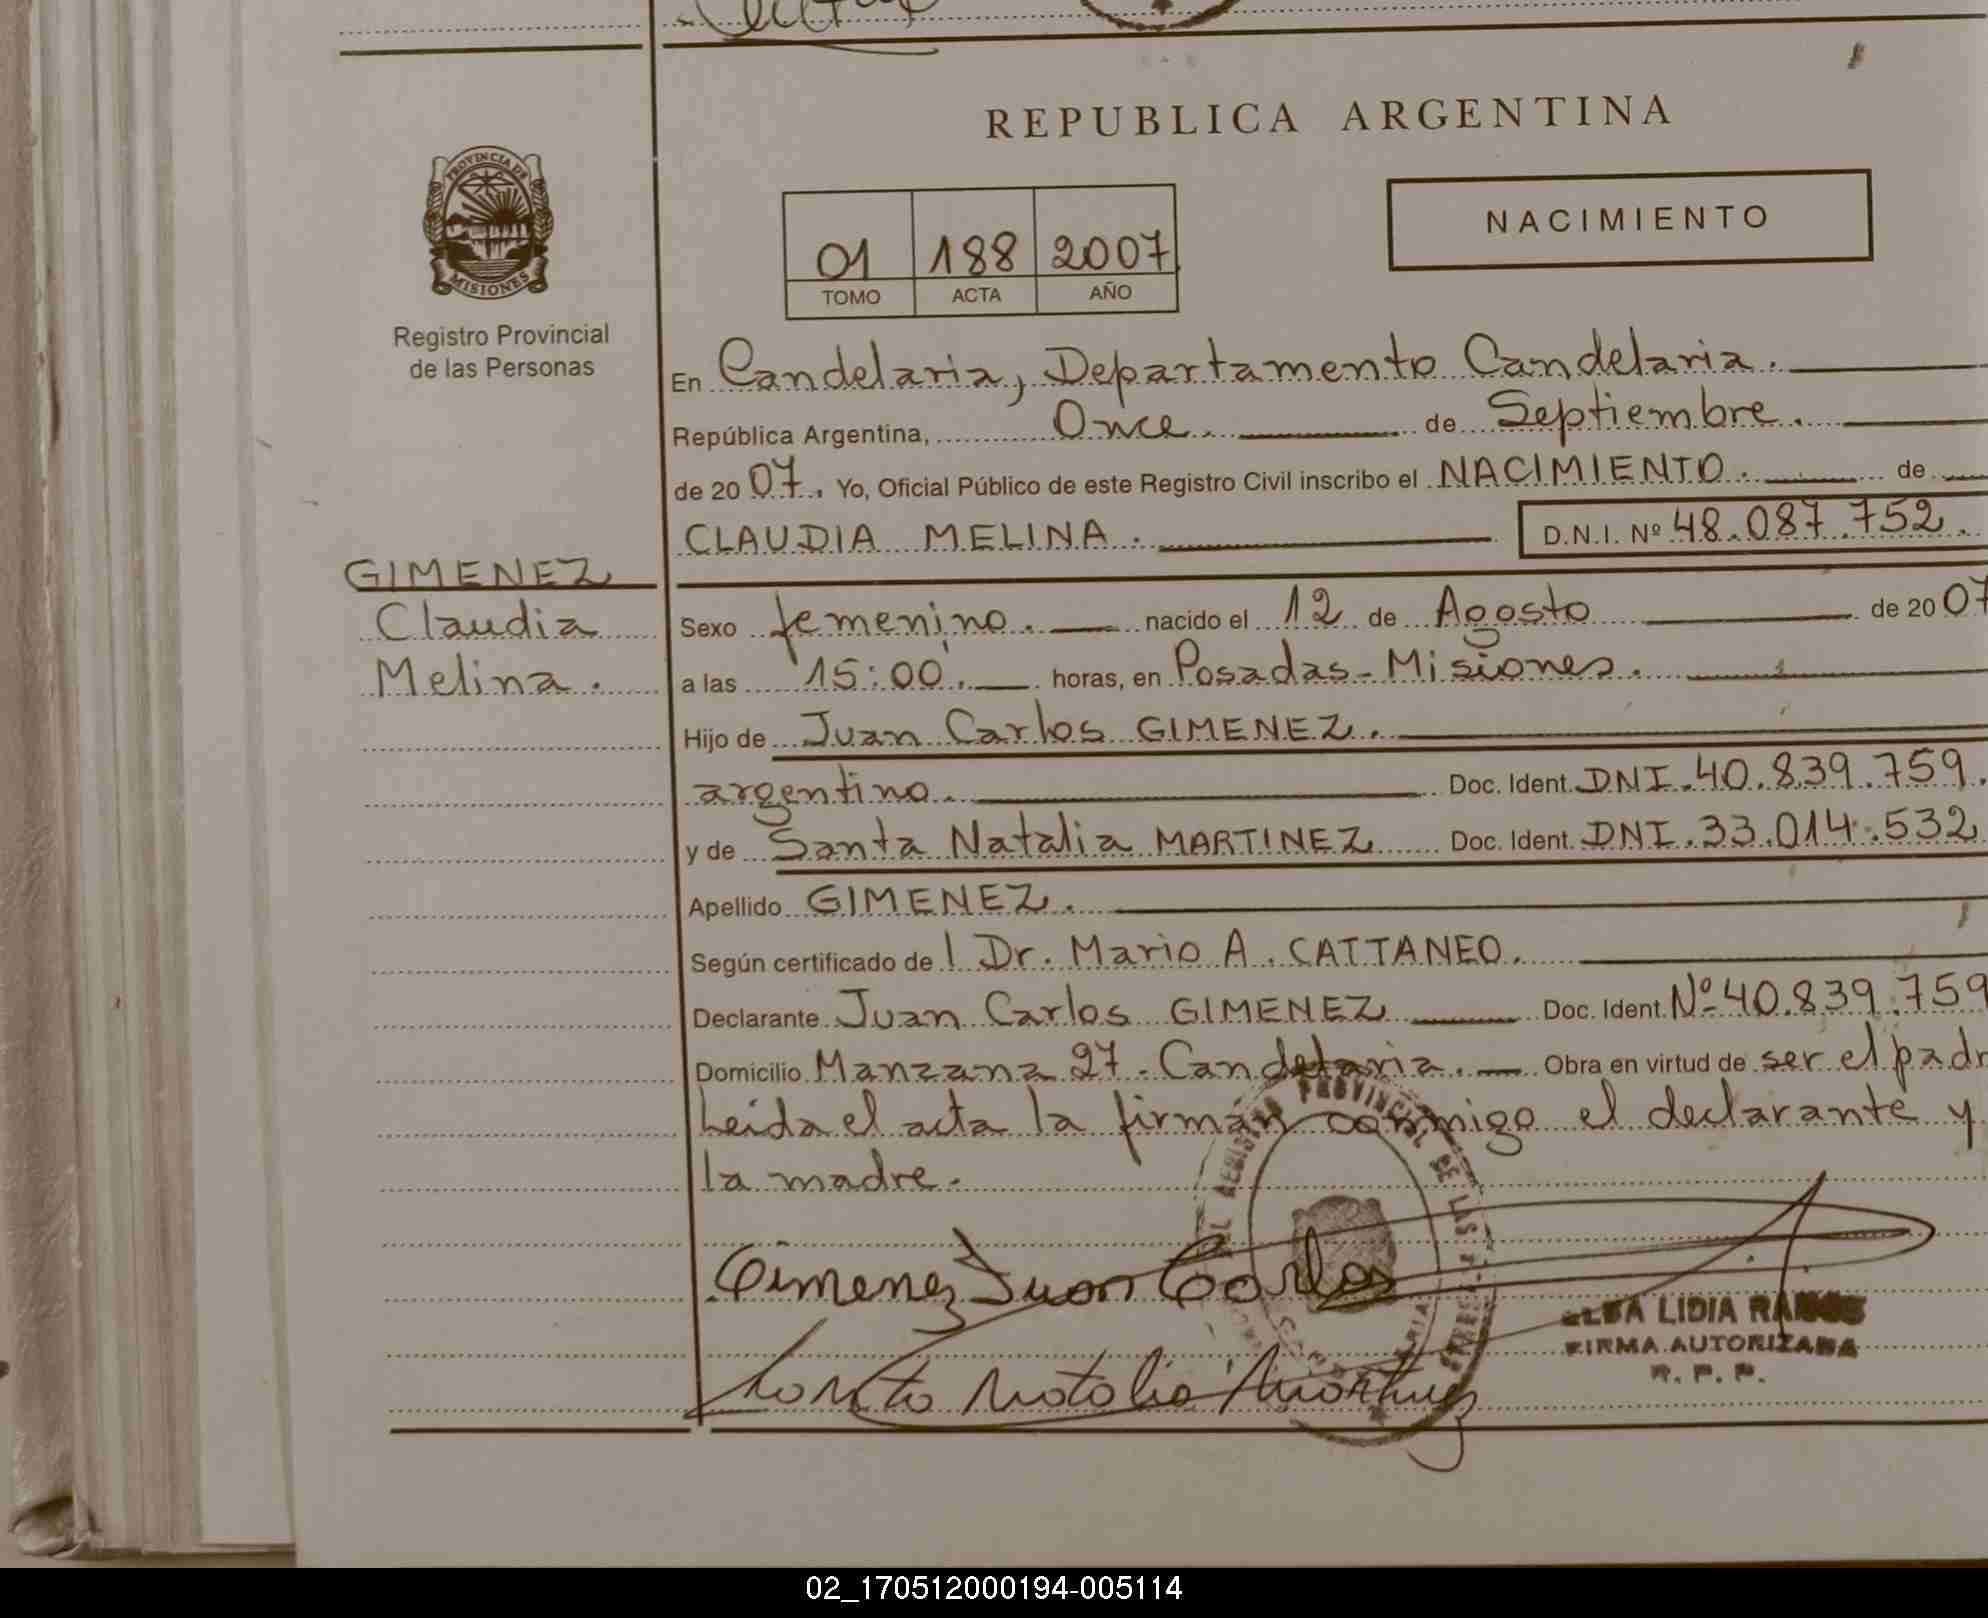 REPUBLICA ARGENTINA
PROVINCIA DE
MISIONES
Registro Provincial
de las Personas
NACIMIENTO
01 188 2007
TOMO ACTA AÑO
En Candelaria, Departamento Candelaria.
República Argentina, Once. de Septiembre.
de 2007. Yo, Oficial Público de este Registro Civil inscribo el NACIMIENTO. de
CLAUDIA MELINA. D.N.I. Nº 48.087.752.
GIMENEZ
Claudia
Melina.
Sexo femenino. nacido el 12 de Agosto de 2007
a las 15:00. horas, en Posadas-Misiones.
Hijo de Juan Carlos GIMENEZ.
argentino. Doc. Ident. DNI.40.839.759.
y de Santa Natalia MARTINEZ Doc. Ident. DNI.33.014.532
Apellido GIMENEZ.
Según certificado de l Dr. Mario A. CATTANEO.
Declarante Juan Carlos GIMENEZ Doc. Ident. Nº 40.839.759
Domicilio Manzana 27. Candelaria. Obra en virtud de ser el padr
Leída el acta la firman conmigo el declarante y
la madre.
REGISTRO PROVINCIAL DE LAS
Gimenez Juan Carlos
ELBA LIDIA RAMOS
FIRMA AUTORIZADA
R. P. P.
Santa Natalia Martinez
02_170512000194-005114